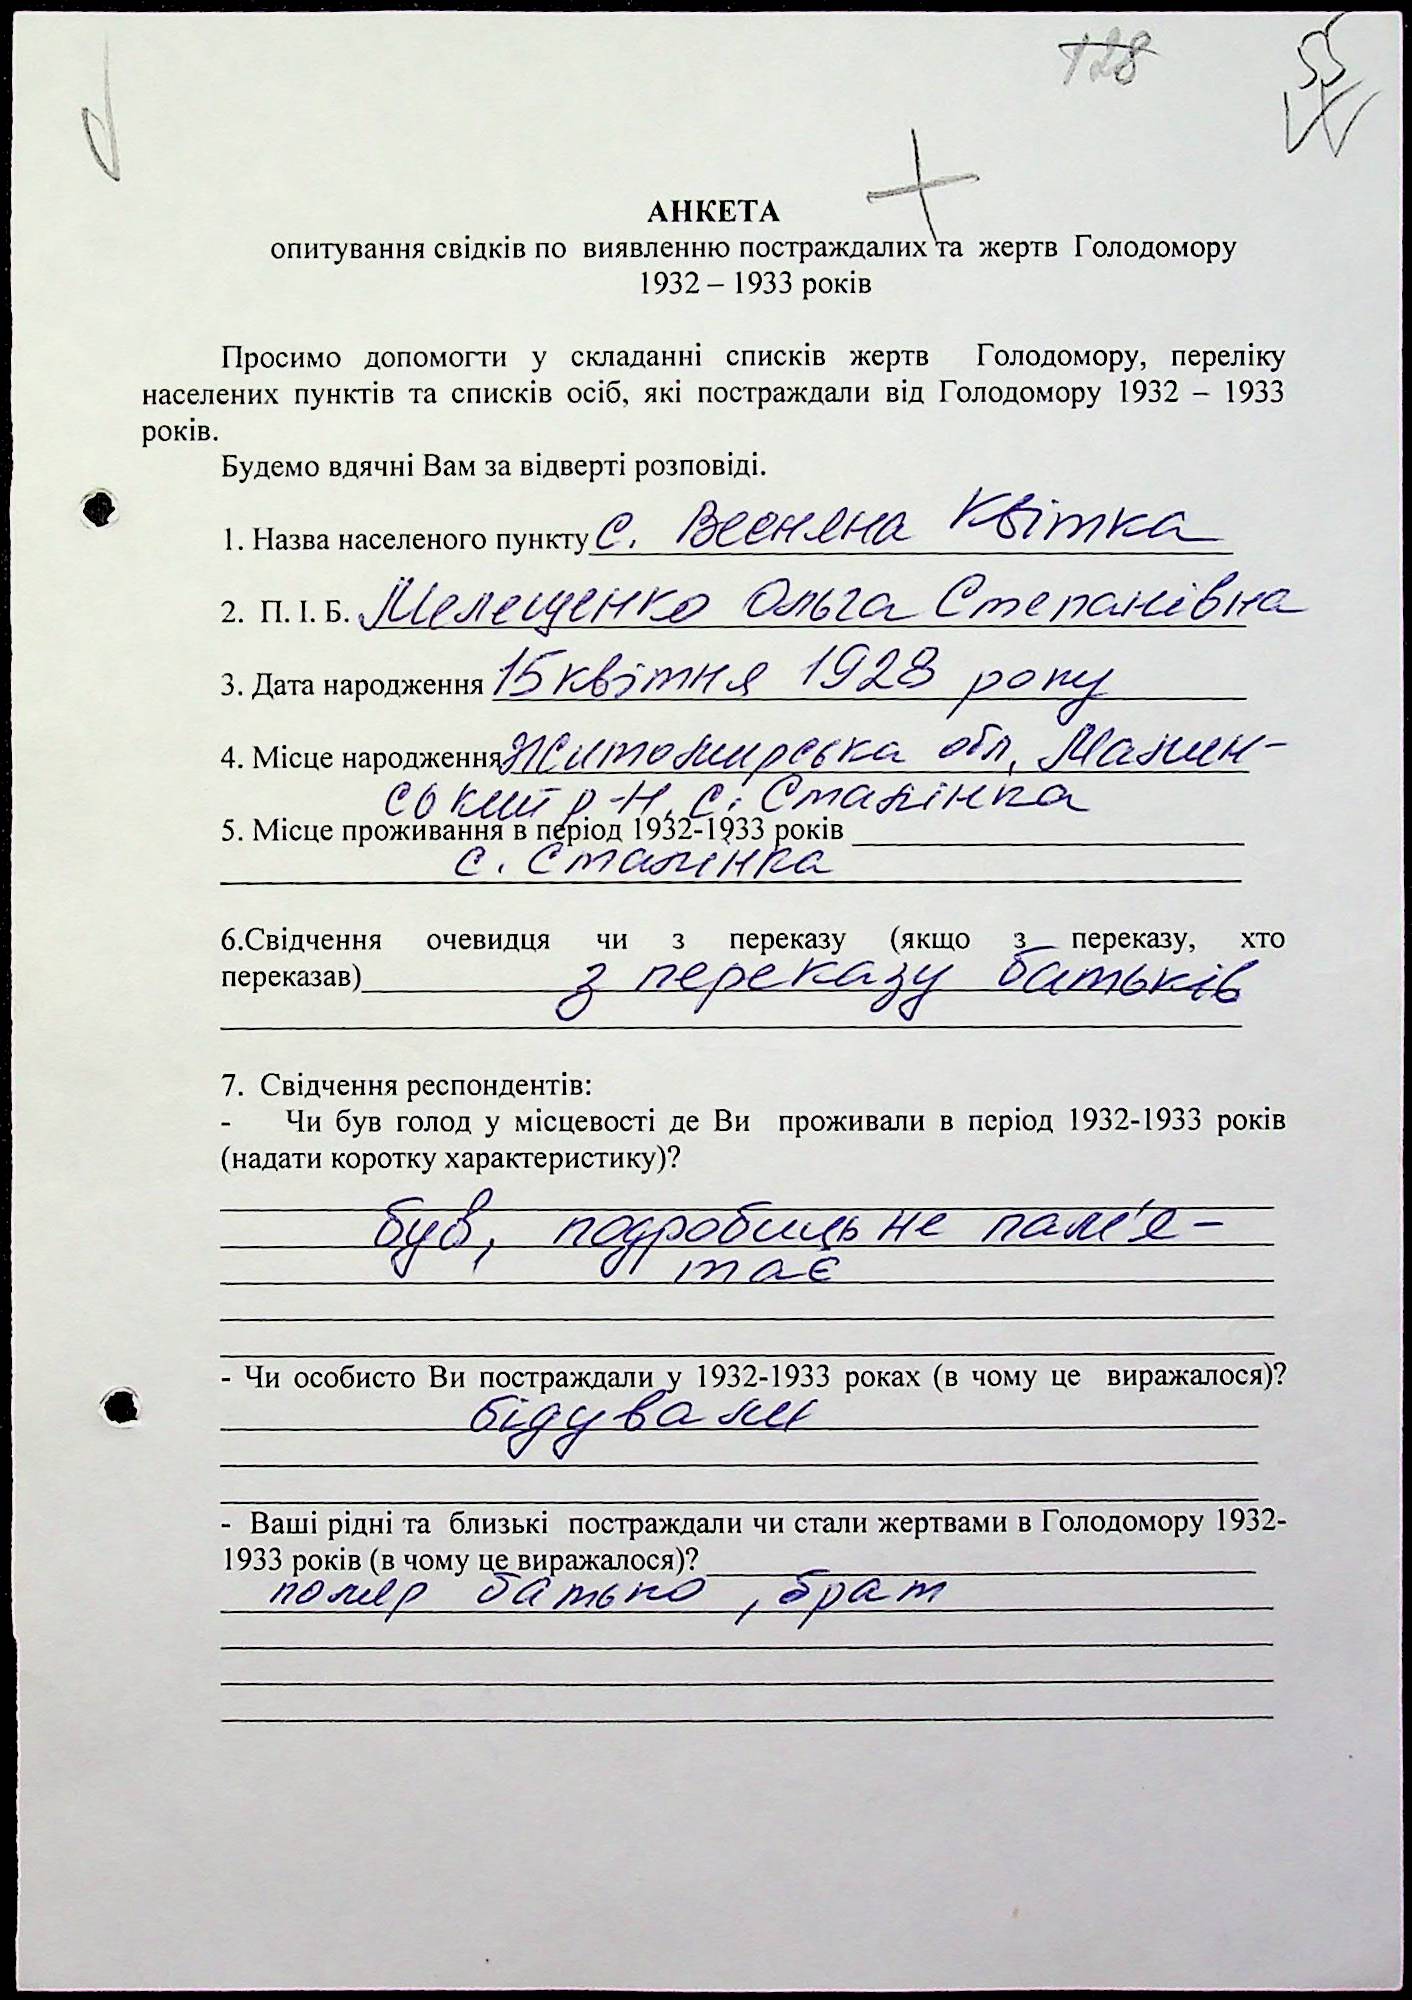 128
55
АНКЕТА
опитування свідків по виявленню постраждалих та жертв Голодомору
1932 – 1933 років
Просимо допомогти у складанні списків жертв Голодомору, переліку
населених пунктів та списків осіб, які постраждали від Голодомору 1932 – 1933
років.
Будемо вдячні Вам за відверті розповіді.
1. Назва населеного пункту с. Весняна Квітка
2. П. І. Б. Мелещенко Ольга Степанівна
3. Дата народження 15 квітня 1928 року
4. Місце народження Житомирська обл, Малин-
ський р-н, с. Сталінка
5. Місце проживання в період 1932-1933 років
с. Сталінка
6.Свідчення очевидця чи з переказу (якщо з переказу, хто
переказав) з переказу батьків
7. Свідчення респондентів:
- Чи був голод у місцевості де Ви проживали в період 1932-1933 років
(надати коротку характеристику)?
був, подробиць не пам'я-
тає
- Чи особисто Ви постраждали у 1932-1933 роках (в чому це виражалося)?
бідували
- Ваші рідні та близькі постраждали чи стали жертвами в Голодомору 1932-
1933 років (в чому це виражалося)?
помер батько, брат